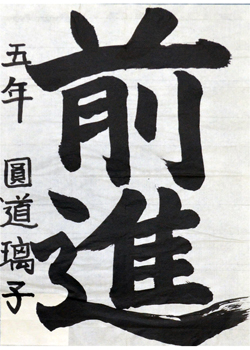 前進
五年 圓道璃子